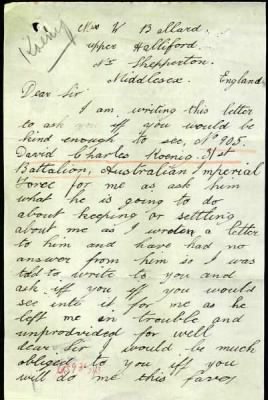 Mrs W Ballard.
Upper Halliford.
Nr Shepperton.
Middlesex. England
Dear Sir.
I am writing this letter
to ask you iff you would be
kind enough to see, No 905.
David Charles Koenig. 31st
Battalion, Australian Imperial
Force for me as ask him
what he is going to do
about keeping or settling
about me as I wroten a letter
to him and have had no
answer from him so I was
told to write to you and
ask iff you iff you would
see into it for me as he
left me in trouble and
unprodvided for well
dear Sir I would be much
obliged to you iff you
will do me this faver